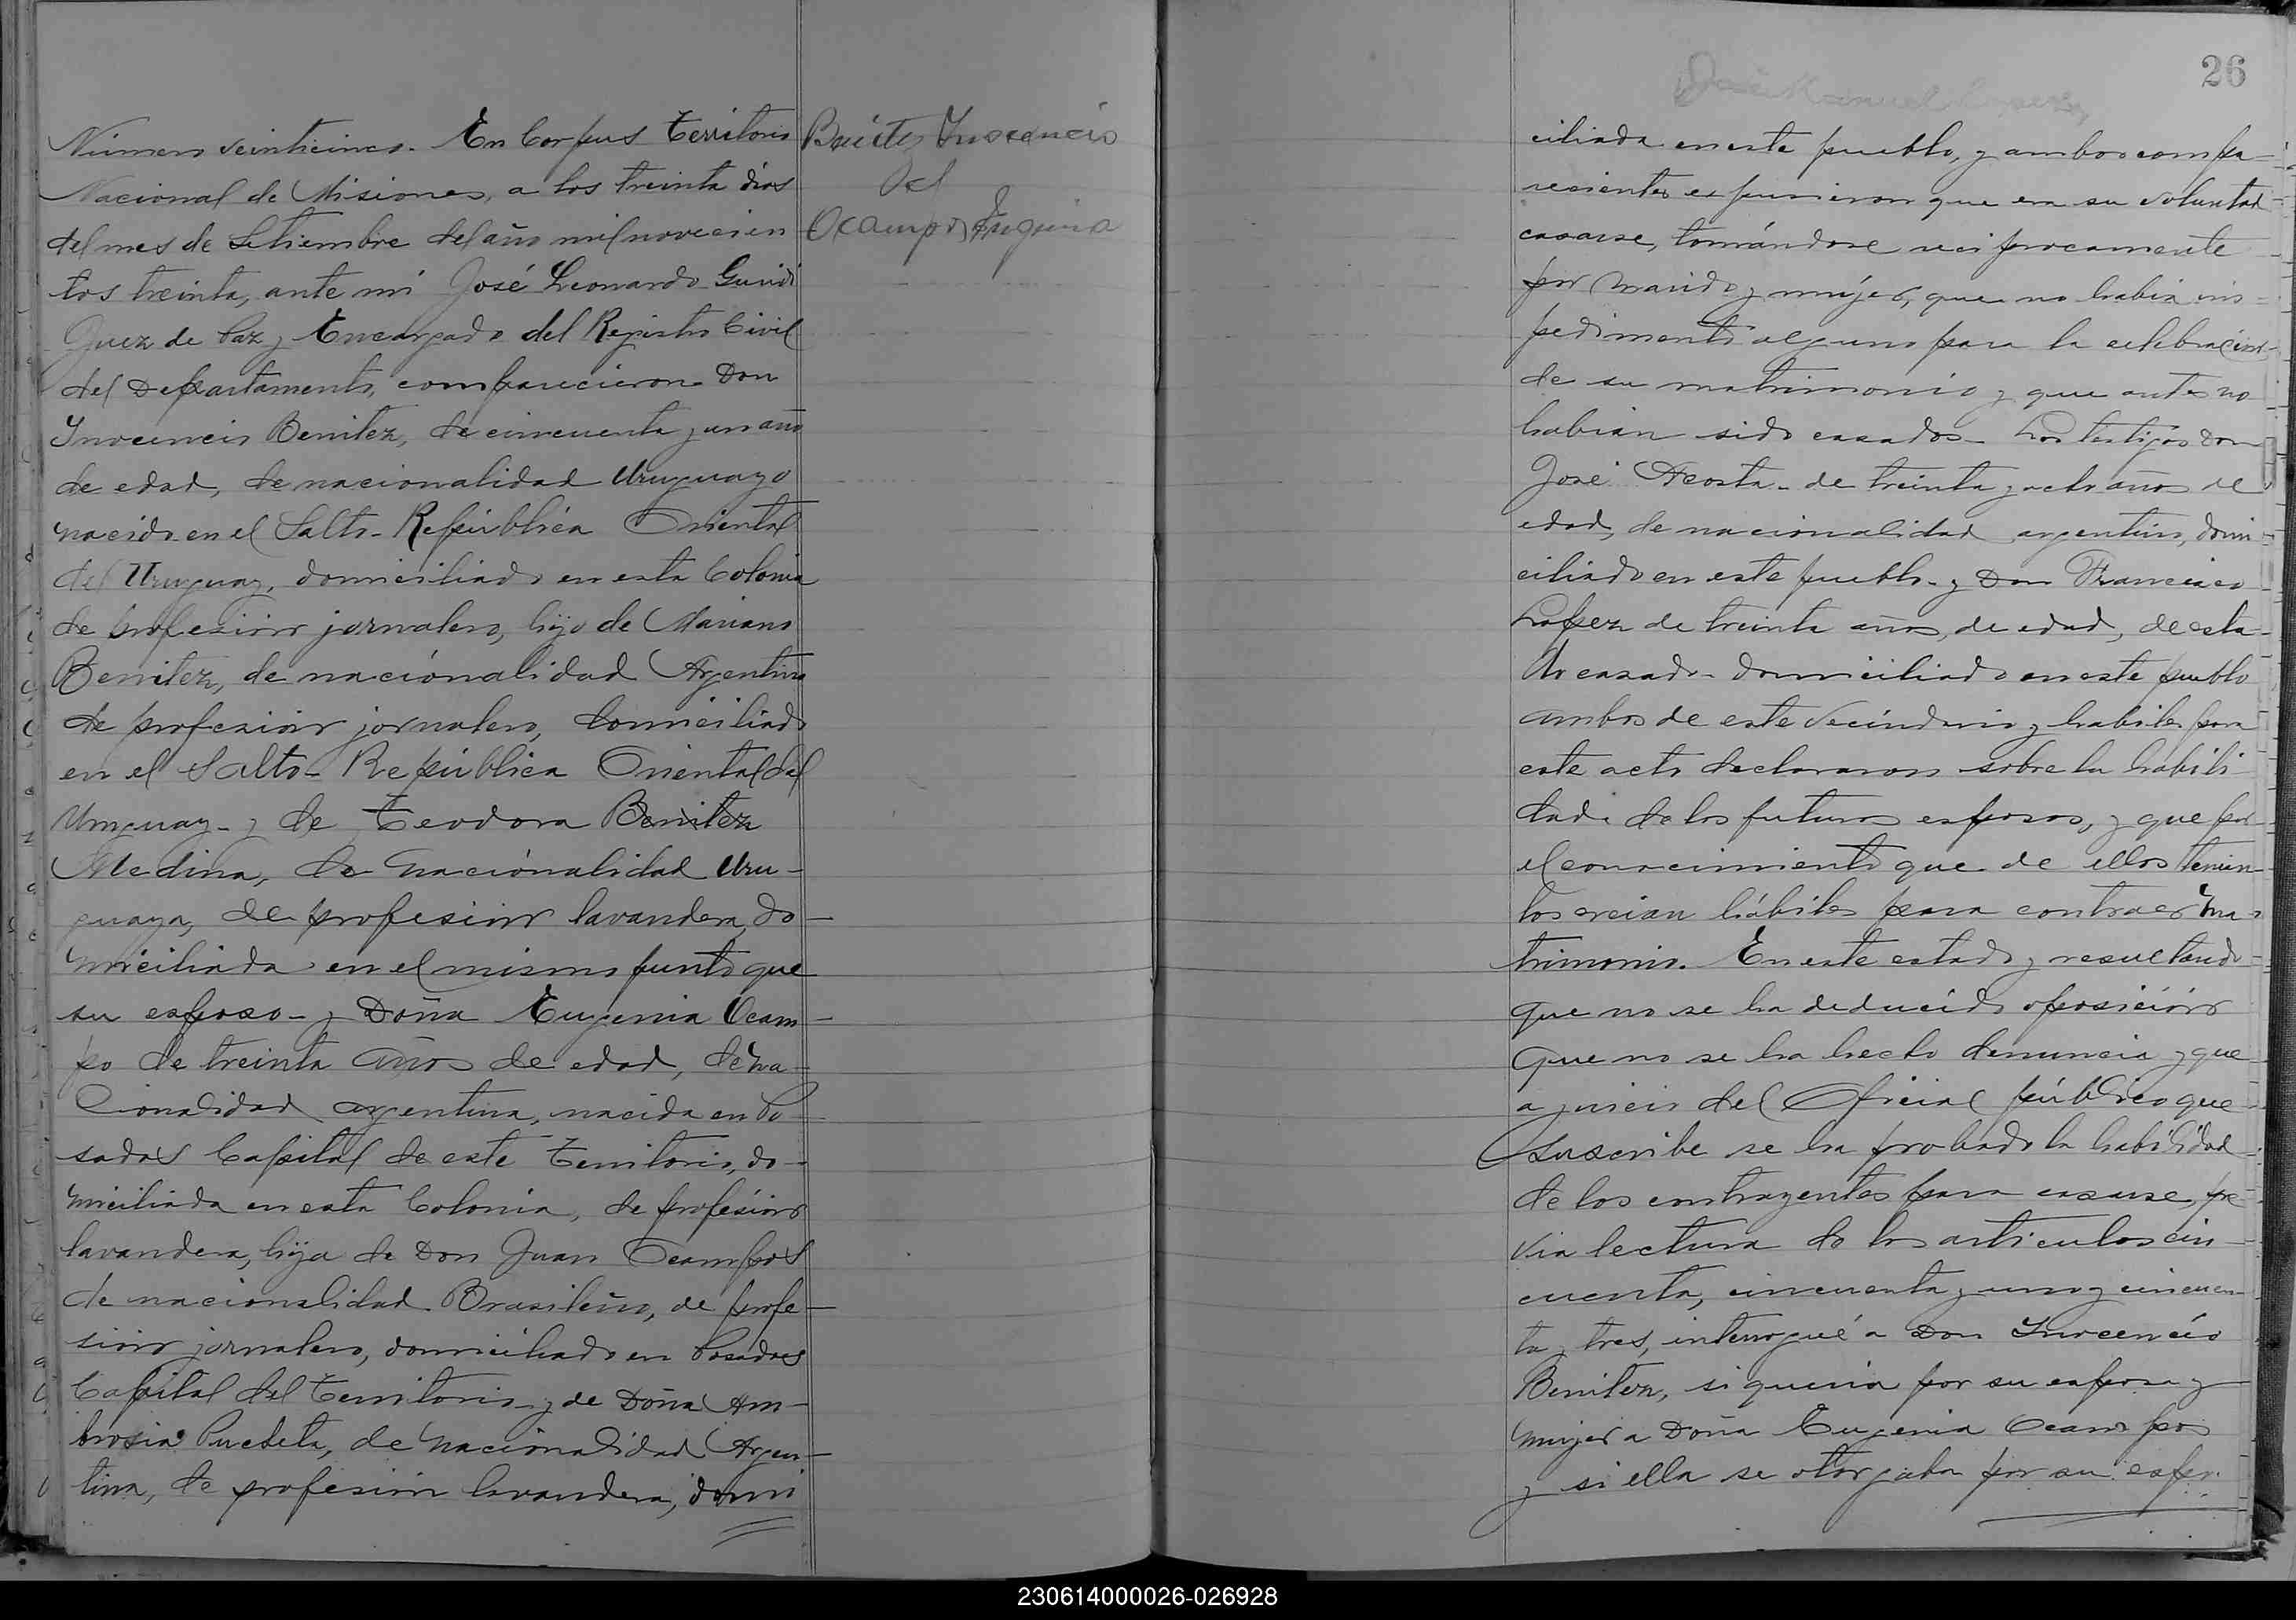 Número veinticinco. En Corpus Territorio
Nacional de Misiones, a los treinta dias
del mes de Setiembre del año mil novecien
tos treinta, ante mi José Leonardo
Juez de Paz y Encargado del Registro Civil
del Departamento, comparecieron Don
Inocencio Benitez, de cincuenta y un año
de edad, de nacionalidad Uruguayo
nacido en el Salto - República Oriental
del Uruguay, domiciliado en esta Colonia
de profesión jornalero, hijo de Mariano
Benitez, de nacionalidad Argentino
de profesión jornalero, domiciliado
en el Salto - República Oriental del
Uruguay - y de Teodora Benitez
Medina, de nacionalidad Uru-
guaya, de profesión lavandera, do-
miciliada en el mismo punto que
su esposo - y Doña Eugenia Ocam-
po de treinta años de edad, de na-
cionalidad argentina, nacida en Po-
sadas Capital de este Territorio, do-
miciliada en esta Colonia, de profesión
lavandera, hija de Don Juan Ocampos
de nacionalidad Brasileño, de profe-
sión jornalero, domiciliado en Posadas
Capital del Territorio y de Doña Am-
brosia, de nacionalidad Argen-
tina, de profesión lavandera, domi
Inocencio
Ocampos
26
José Manuel
ciliada en este pueblo, y ambos compa-
recientes expusieron que era su voluntad
casarse, tomándose reciprocamente
por marido y mujer, que no habia im-
pedimento alguno para la celebración
de su matrimonio y que antes no
habian sido casados - Los testigos Don
José Acosta - de treinta y ocho años de
edad, de nacionalidad argentino, domi-
ciliado en este pueblo - y Don Francisco
Lopez de treinta años, de edad, de esta-
do casado - domiciliado en este pueblo
ambos de este vecindario y habiles para
este acto declararon sobre la habili-
dad de los futuros esposos, y que por
el conocimiento que de ellos tenian
los creian hábiles para contraer ma-
trimonio. En este estado y resultando
que no se ha deducido oposición
que no se ha hecho denuncia y que
a juicio del Oficial público que
suscribe se ha probado la habilidad
de los contrayentes para casarse, pre-
via lectura de los articulos cin-
cuenta, cincuenta y uno y cincuen-
ta y tres, interrogué a Don Inocencio
Benitez, si queria por su esposa y
mujer a Doña Eugenia Ocampos
y si ella se otorgaba por su espo
230614000026-026928